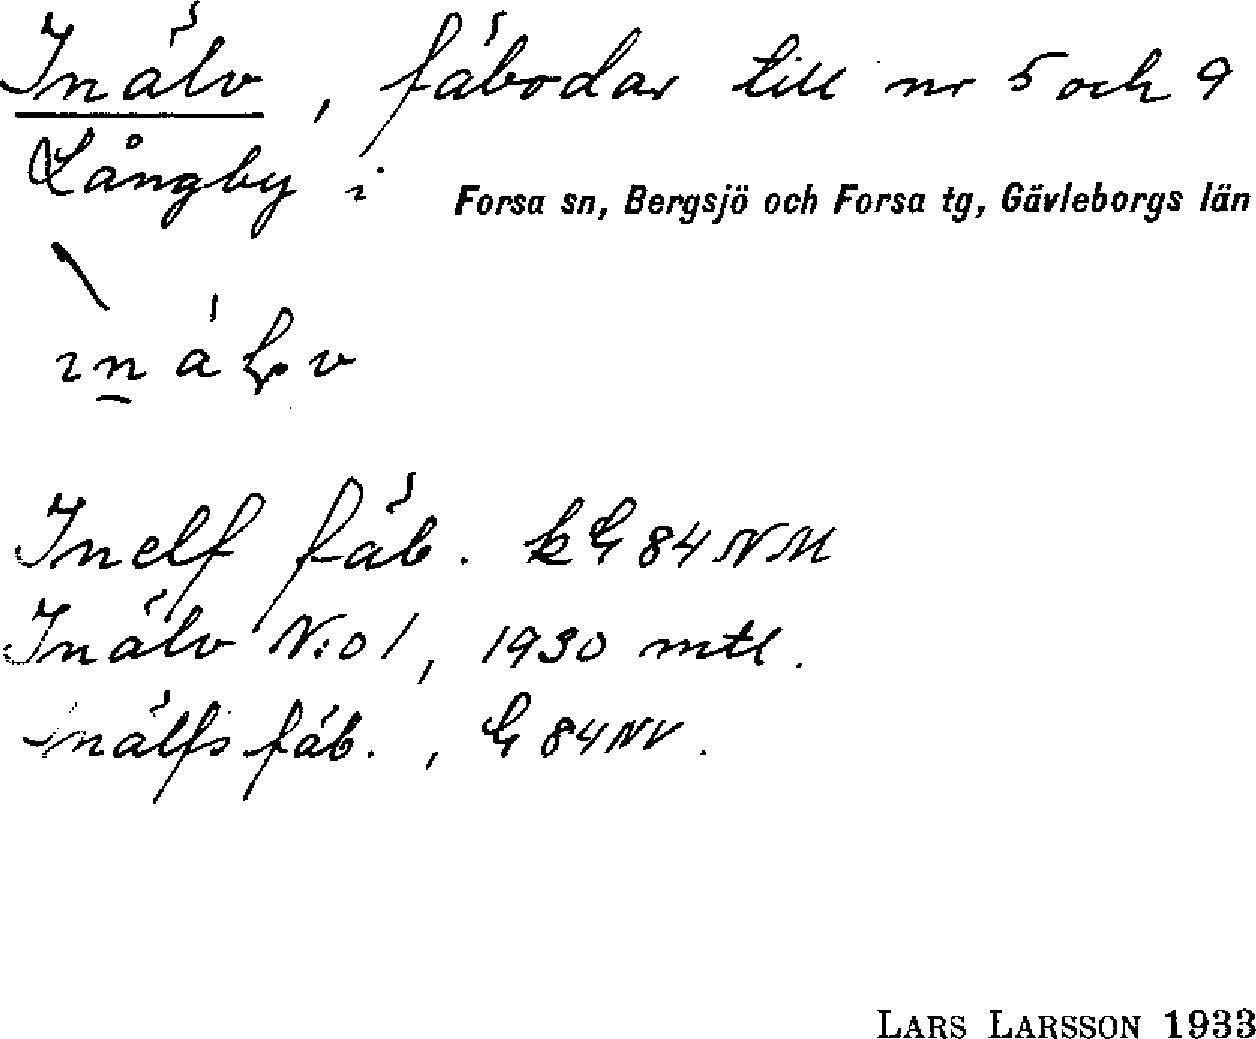 Inälv, fäbodar till nr 5 och 9
Långby i Forsa sn, Bergsjö och Forsa tg, Gävleborgs län
Inelf fäb. kG 84 NM
Inälv N:o 1, 1930 mtl.
inälfs fäb., G 84 NV.
LARS LARSSON 1933